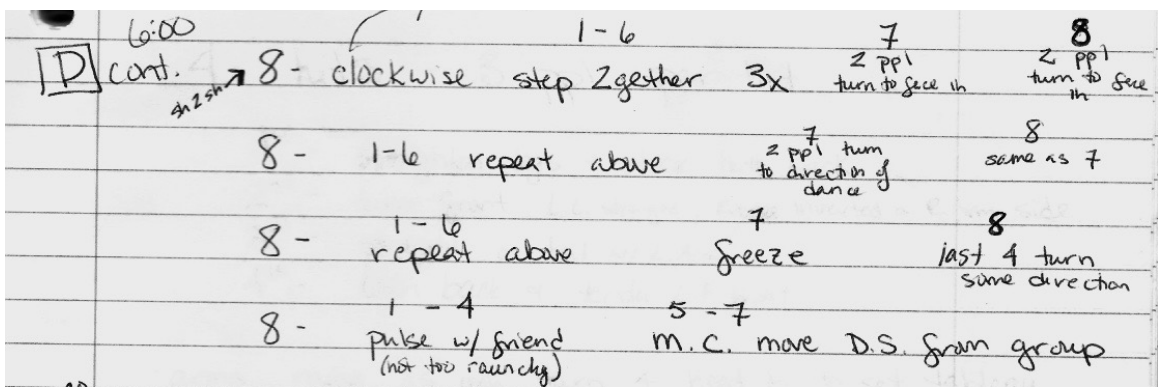 6:00 1-6 7 8
D cont. sh 2 sh 8- clockwise step 2gether 3x 2 ppl turn to face in 2 ppl turn to face in
8- 1-6 repeat above 7 2 ppl turn to direction of dance 8 same as 7
8- 1-6 repeat above 7 freeze 8 last 4 turn same direction
8- 1-4 pulse w/ friend (not too raunchy) 5-7 M.C. move D.S. from group